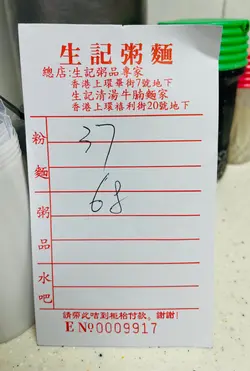 生記粥麵
總店:生記粥品專家
香港上環畢街7號地下
生記清湯牛腩麵家
香港上環禧利街20號地下
粉
麵
粥
品
水
吧
37
68
請帶此咭到柜枱付款。謝謝!
E No 0009917